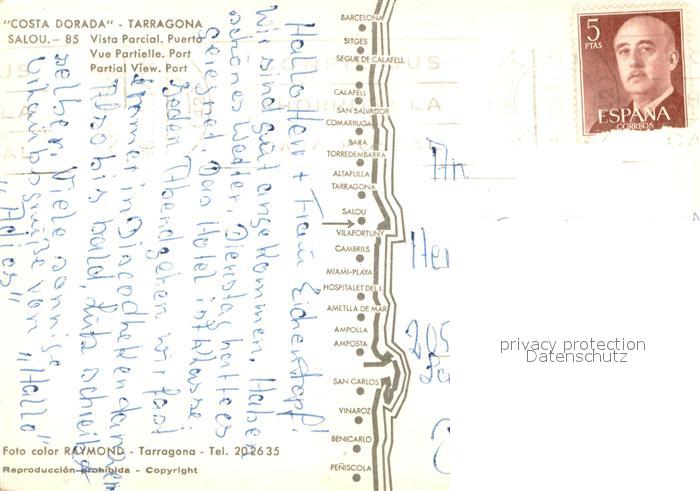 "COSTA DORADA" - TARRAGONA
SALOU. - 85 Vista Parcial. Puerto
Vue Partielle. Port
Partial View. Port
Hallo Herr + Frau
Wir sind gut angekommen. Haben
schönes Wetter. Dienstag hatt es
geregnet. Das Hotel ist klasse
Jeden Abend gehen wir fast
immer in
Also bis bald,
selber. Viele sonnige
Urlaubsgrüße von "Hallo"
BARCELONA
SITGES
SEGUR DE CALAFELL
CALAFELL
SAN SALVADOR
COMARRUGA
BARA
TORREDEMBARRA
ALTAFULLA
TARRAGONA
SALOU
VILAFORTUNY
CAMBRILS
MIAMI-PLAYA
HOSPITALET DEL I.
AMETLLA DE MAR
AMPOLLA
AMPOSTA
SAN CARLOS
VINAROZ
BENICARLO
PEÑISCOLA
5
PTAS
ESPAÑA
CORREOS
An
205
privacy protection
Datenschutz
Foto color RAYMOND - Tarragona - Tel. 20 26 35
Reproducción prohibida - Copyright